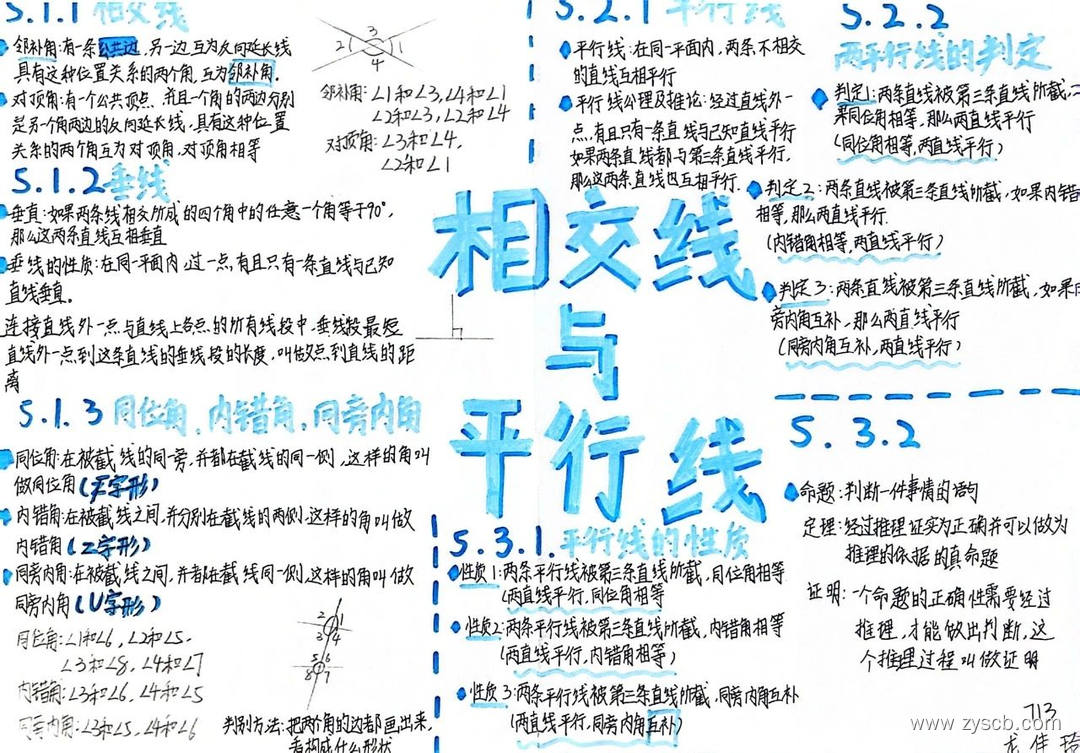 5.1.1 相交线
邻补角:有一条公共边,另一边互为反向延长线
具有这种位置关系的两个角,互为邻补角.
对顶角:有一个公共顶点,并且一个角的两边分别
是另一个角两边的反向延长线,具有这种位置
关系的两个角互为对顶角,对顶角相等
3
2 1
4
邻补角:∠1和∠3,∠4和∠1
∠2和∠3,∠2和∠4
对顶角:∠3和∠4,
∠2和∠1
5.1.2垂线
垂直:如果两条线相交所成的四个角中的任意一个角等于90°,
那么这两条直线互相垂直
垂线的性质:在同一平面内,过一点有且只有一条直线与已知
直线垂直.
连接直线外一点与直线上各点的所有线段中,垂线段最短
直线外一点到这条直线的垂线段的长度,叫做点到直线的距
离
5.1.3同位角、内错角、同旁内角
同位角:在被截线的同一旁,并都在截线的同一侧,这样的角叫
做同位角(F字形)
内错角:在被截线之间,并分别在截线的两侧,这样的角叫做
内错角(Z字形)
同旁内角:在被截线之间,并都在截线同一侧,这样的角叫做
同旁内角(U字形)
同位角:∠1和∠6,∠2和∠5.
∠3和∠8,∠4和∠7
内错角:∠3和∠6,∠4和∠5
同旁内角:∠3和∠5,∠4和∠6
2 1
3 4
5 6
8 7
判别方法:把两个角的边都画出来,
看构成什么形状
相交线
与
平行线
5.2.1 平行线
平行线:在同一平面内,两条不相交
的直线互相平行
平行线公理及推论:经过直线外一
点,有且只有一条直线与已知直线平行
如果两条直线都与第三条直线平行,
那么这两条直线也互相平行.
5.2.2
两平行线的判定
判定1:两条直线被第三条直线所截,
果同位角相等,那么两直线平行
(同位角相等,两直线平行)
判定2:两条直线被第三条直线所截,如果内错
相等,那么两直线平行.
(内错角相等,两直线平行)
判定3:两条直线被第三条直线所截,如果
旁内角互补,那么两直线平行
(同旁内角互补,两直线平行)
5.3.1.平行线的性质
性质1:两条平行线被第三条直线所截,同位角相等
(两直线平行,同位角相等
性质2:两条平行线被第三条直线所截,内错角相等
(两直线平行,内错角相等)
性质3:两条平行线被第三条直线所截,同旁内角互补
(两直线平行,同旁内角互补)
5.3.2
命题:判断一件事情的语句
定理:经过推理证实为正确并可以做为
推理的依据的真命题
证明:一个命题的正确性需要经过
推理,才能做出判断,这
个推理过程叫做证明
713
www.zyscb.com